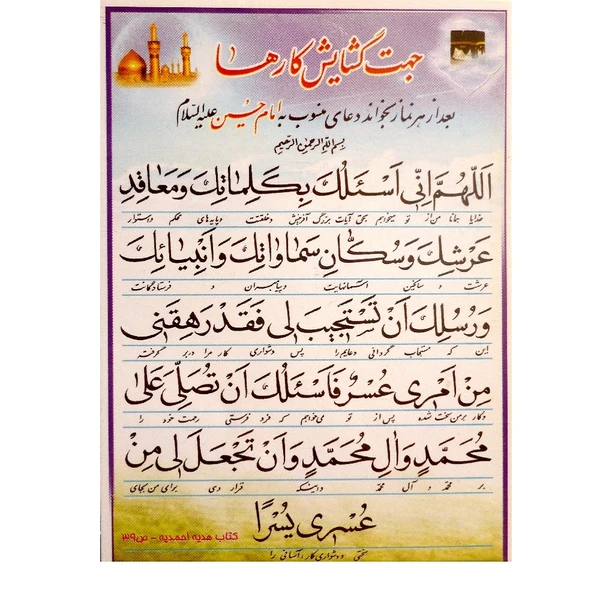 جهت گشایش کارها
بعد از هر نماز بخواند دعای منسوب به امام حسین علیه السلام
بسم الله الرحمن الرحیم
اَللّٰهُمَّ اِنّی اَسْئَلُكَ بِكَلِمٰاتِكَ وَمَعٰاقِدِ
خدایا همانا من از تو میخواهم بحق آیات بزرگ آفرینش و خلقتت و پایه‌های محکم و استوار
عَرْشِكَ وَسُكّٰانِ سَمٰاوٰاتِكَ وَاَنْبِیٰائِكَ
عرشت و ساکنین آسمانهایت و پیامبران و فرستادگانت
وَرُسُلِكَ اَنْ تَسْتَجیبَ لی فَقَدْ رَهِقَنی
این که مستجاب گردانی دعایم را پس دشواری کار مرا در بر گرفته
مِنْ اَمْری عُسْرٌ فَاَسْئَلُكَ اَنْ تُصَلِّیَ عَلیٰ
و کار بر من سخت شده پس از تو می‌خواهم که فرو فرستی رحمت خود را
مُحَمَّدٍ وَاٰلِ مُحَمَّدٍ وَاَنْ تَجْعَلَ لی مِنْ
بر محمد و آل محمد و اینکه قرار دهی برای من بجای
عُسْری یُسْرًا
سختی و دشواری کار، آسانی را
کتاب هدیه احمدیه - ص۳۹